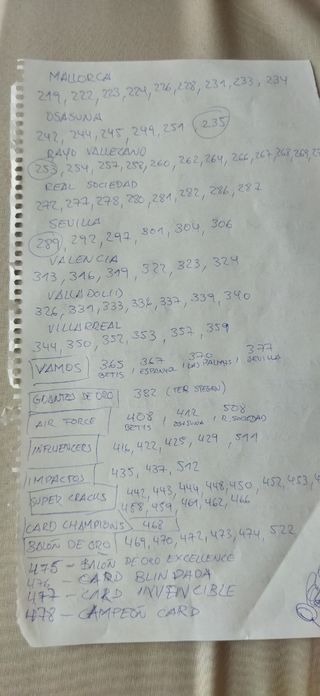 MALLORCA
219, 222, 223, 224, 226, 228, 231, 233, 234
OSASUNA
242, 244, 245, 249, 251 235
RAYO VALLECANO
253, 254, 257, 258, 260, 262, 264, 266, 267, 268, 269, 27
REAL SOCIEDAD
272, 277, 278, 280, 281, 282, 286, 287
SEVILLA
289, 292, 297, 301, 304, 306
VALENCIA
313, 316, 319, 322, 323, 324
VALLADOLID
326, 331, 333, 336, 337, 339, 340
VILLARREAL
344, 350, 352, 353, 357, 359
VAMOS 365 BETIS, 367 ESPANYOL, 370 LAS PALMAS, 377 SEVILLA
GUANTES DE ORO 382 (TER STEGEN)
AIR FORCE 408 BETIS, 412 OSASUNA, 508 R. SOCIEDAD
INFLUENCERS 416, 422, 425, 429, 511
IMPACTOS 435, 437, 512
SUPER CRACKS 442, 443, 444, 448, 450, 452, 453, 4
458, 459, 461, 462, 466
CARD CHAMPIONS 468
BALÓN DE ORO 469, 470, 472, 473, 474, 522
475 - BALÓN DE ORO EXCELLENCE
476 - CARD BLINDADA
477 - CARD INVENCIBLE
478 - CAMPEÓN CARD